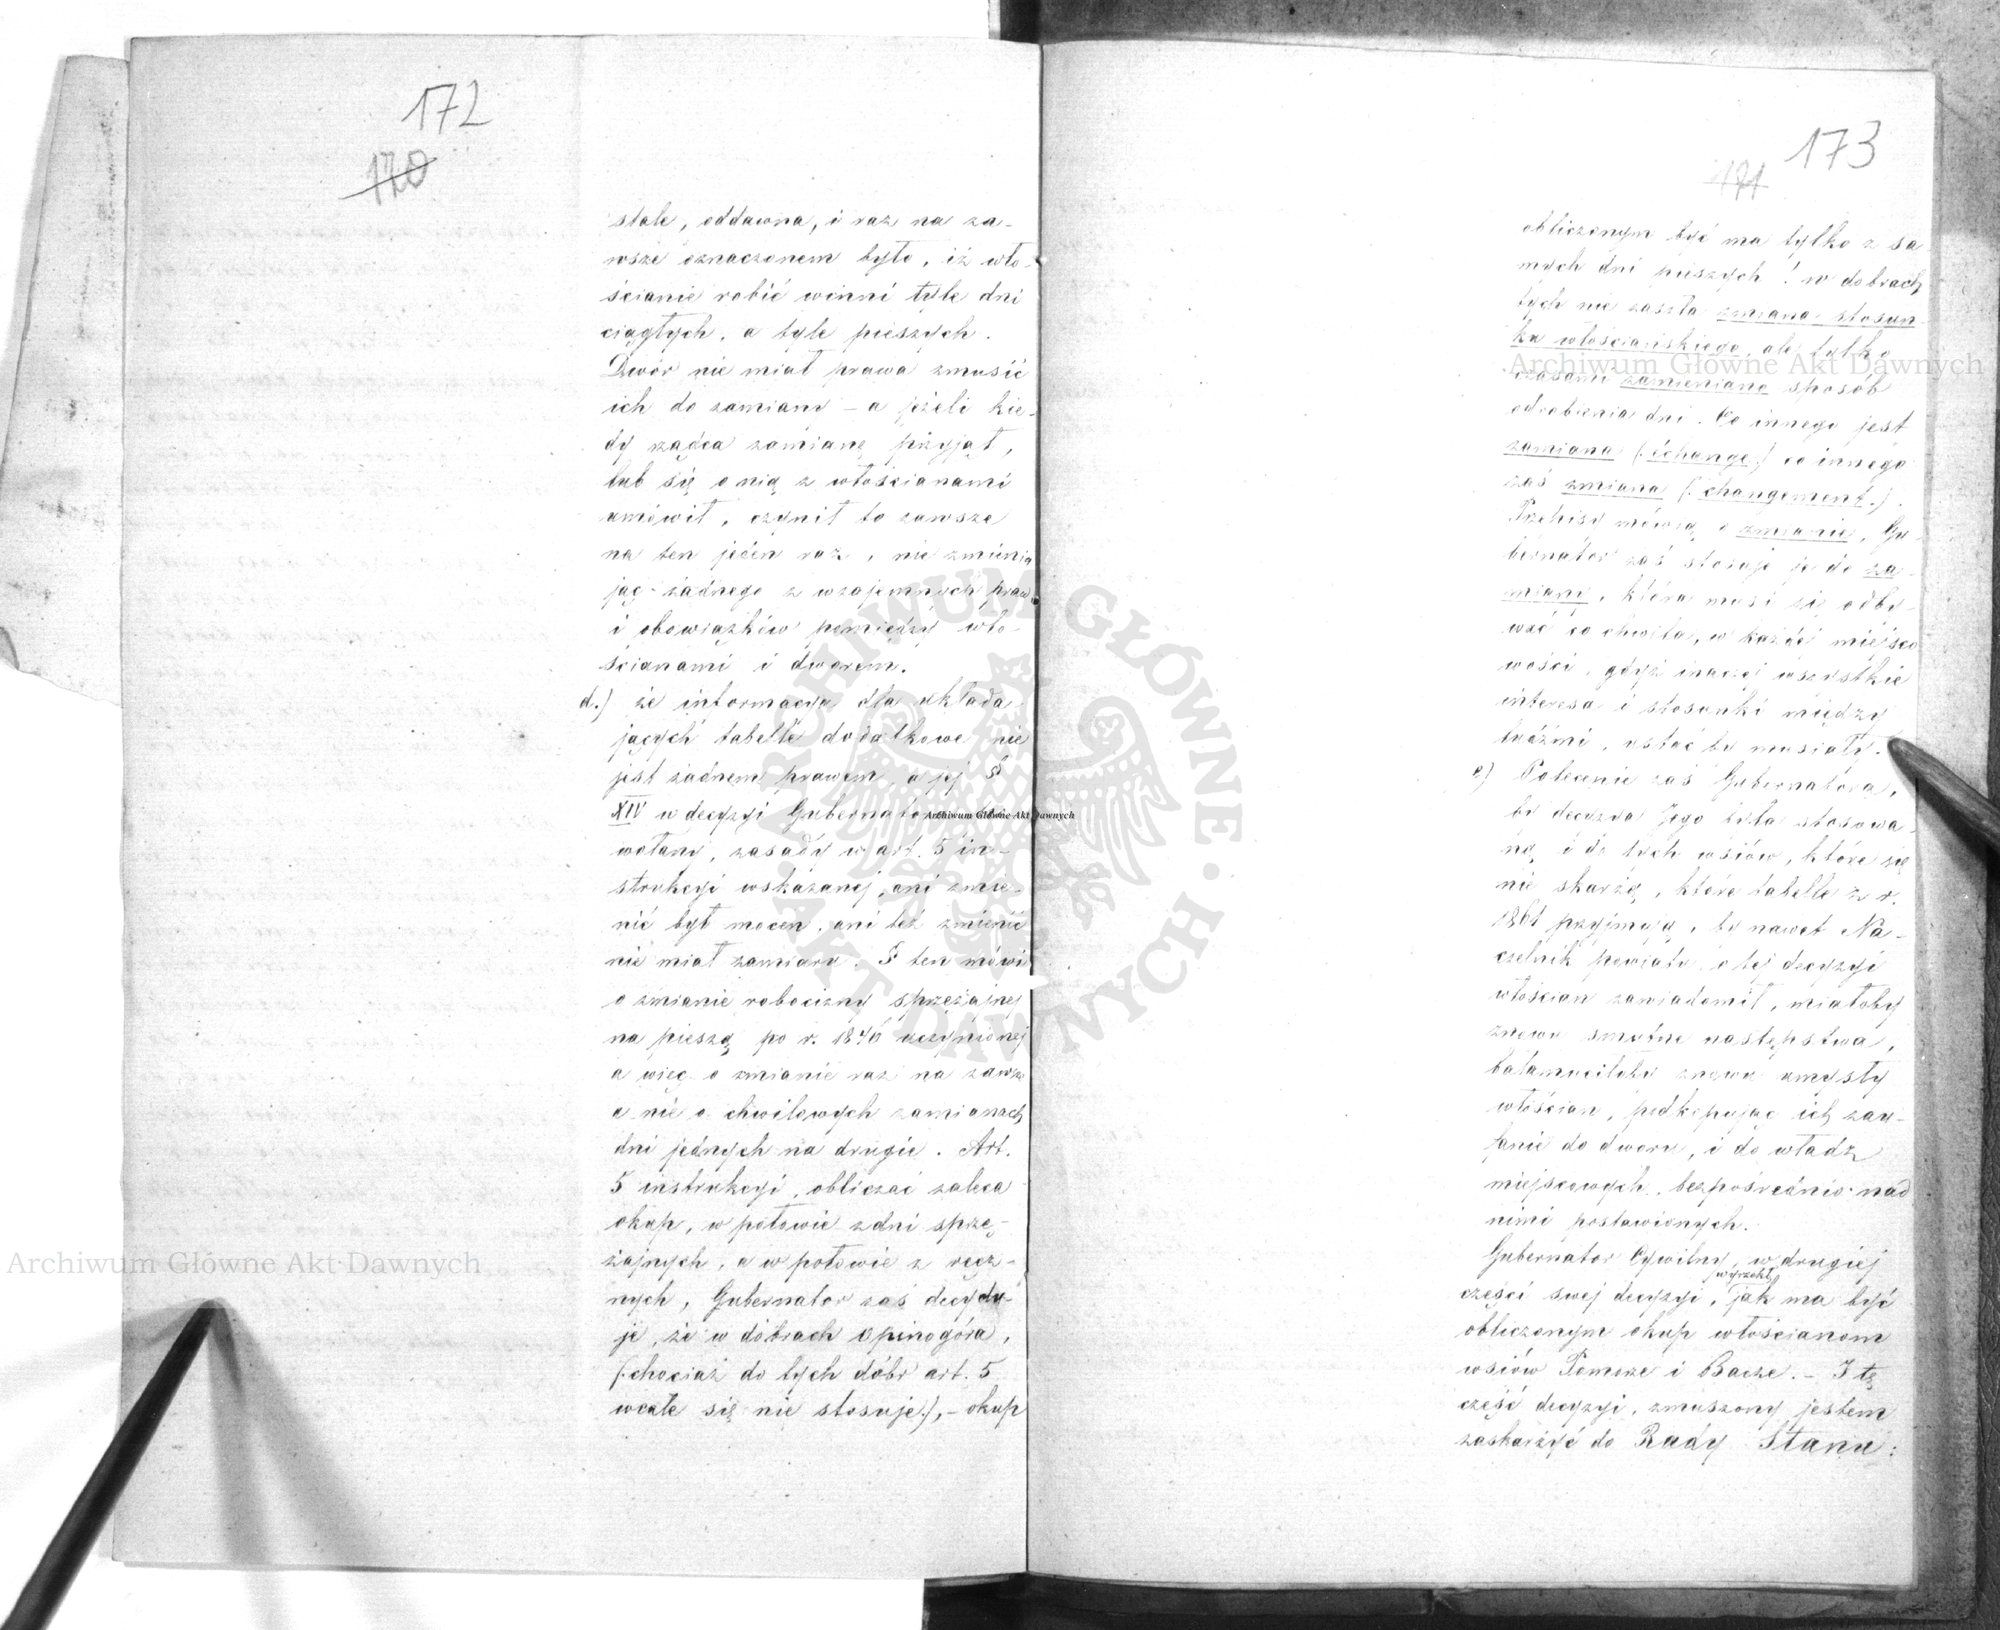 172
170
stale, oddawna, i raz na za-
wsze oznaczonem było, iż wło-
ścianie robić winni tyle dni
ciągłych, a tyle pieszych.
Dwór nie miał prawa zmusić
ich do zamiany – a jeżeli kie-
dy rządca zamianę przyjął,
lub się o nią z włościanami
umówił, czynił to zawsze
na ten jeden raz, nie zmienia
jąc żadnego z wzajemnych praw
i obowiązków pomiędzy wło-
ścianami i dworem.
d.) że informacya dla układa
jących tabelle dodatkowe nie
jest żadnem prawem, a jej §
XIV w decyzyi Gubernatora
wołany, zasady w art. 5 in-
strukcyi wskazanej, ani zmie-
nić był mocen, ani też zmienić
nie miał zamiaru. § ten mówi
o zmianie robocizny sprzężajnej
na pieszą po r. 1846 uczynionej
a więc o zmianie raz na zawsze
a nie o chwilowych zamianach
dni jednych na drugie. Art.
5 instrukcyi, obliczać zaleca
okup, w połowie z dni sprzę-
żajnych, a w połowie z ręcz-
nych, Gubernator zaś decydu-
je, że w dobrach Opinogóra,
(:chociaż do tych dóbr art. 5
wcale się nie stosuje:), – okup
173
171
obliczonym być ma tylko z sa
mych dni pieszych! w dobrach
tych nie zaszła zmiana stosun-
ku włościańskiego, ale tylko
czasami zamieniano sposób
odrobienia dni. Co innego jest
zamiana (:échange:) co innego
zaś zmiana (:changement:).
Przepisy mówią o zmianie, Gu-
bernator zaś stosuje je do za-
miany, która musi się odby-
wać co chwila, w każdej miejsco
wości, gdyż inaczej wszystkie
interesa i stosunki między
ludźmi, ustać by musiały.
e) Polecenie zaś Gubernatora,
by decyzya Jego była stosowa-
ną i do tych wsiów, które się
nie skarżą, które tabelle z r.
1861 przyjmują, by nawet Na-
czelnik powiatu o tej decyzyi
włościan zawiadomił, miałoby
znowu smutne następstwa,
bałamuciłoby znowu umysły
włościan, podkopując ich zau-
fanie do dworu, i do władz
miejscowych, bezpośrednio nad
nimi postawionych.
Gubernator Cywilny, w drugiej
części swej decyzyi, wyrzekł, jak ma być
obliczonym okup włościanom
wsiów Pomorze i Bacze. – I tę
część decyzyi, zmuszony jestem
zaskarżyć do Rady Stanu:
Archiwum Główne Akt Dawnych
Archiwum Główne Akt Dawnych
Archiwum Główne Akt Dawnych
ARCHIWUM GŁÓWNE AKT DAWNYCH